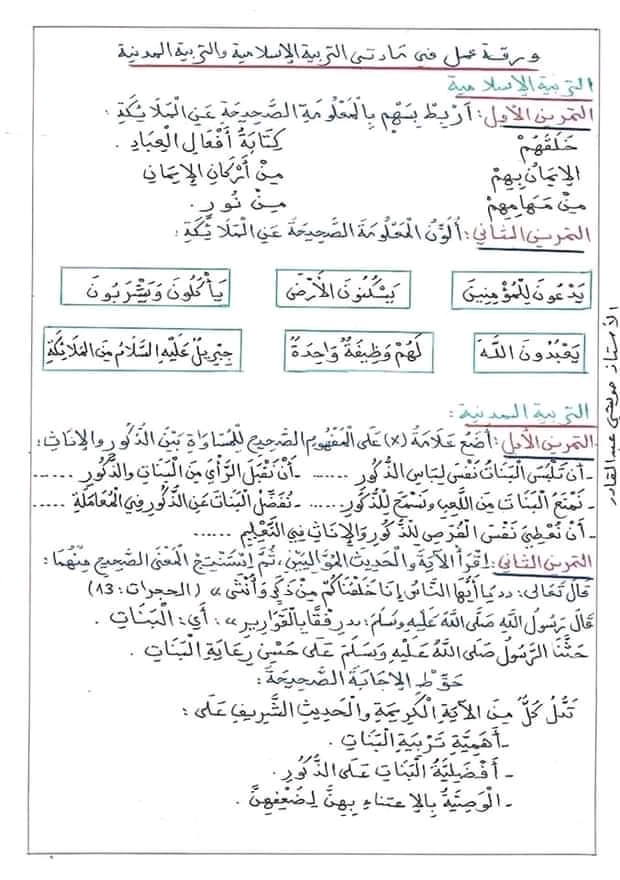 ورقة عمل في مادتي التربية الإسلامية والتربية المدنية
التربية الإسلامية
التمرين الأول: أَرْبِطُ بِسَهْمٍ بِالْمَعْلُومَةِ الصَّحِيحَةِ عَنِ الْمَلَائِكَةِ :
خَلْقُهُمْ كِتَابَةُ أَفْعَالِ الْعِبَادِ .
الإِيمَانُ بِهِمْ مِنْ أَرْكَانِ الْإِيمَانِ
مِنْ مَهَامِهِمْ مِنْ نُورٍ .
التمرين الثاني: أُلَوِّنُ الْمَعْلُومَةَ الصَّحِيحَةَ عَنِ الْمَلَائِكَةِ :
يَدْعُونَ لِلْمُؤْمِنِينَ يَسْكُنُونَ الْأَرْضَ يَأْكُلُونَ وَيَشْرَبُونَ
يَعْبُدُونَ اللَّهَ لَهُمْ وَظِيفَةٌ وَاحِدَةٌ جِبْرِيلُ عَلَيْهِ السَّلَامُ مِنَ الْمَلَائِكَةِ
التربية المدنية :
التمرين الأول: أَضَعُ عَلَامَةَ (x) عَلَى الْمَفْهُومِ الصَّحِيحِ لِلْمُسَاوَاةِ بَيْنَ الذُّكُورِ وَالإِنَاثِ :
- أَنْ تَلْبَسَ الْبَنَاتُ نَفْسَ لِبَاسِ الذُّكُورِ ...... - أَنْ نَقْبَلَ الرَّأْيَ مِنَ الْبَنَاتِ وَالذُّكُورِ ......
- نَمْنَعُ الْبَنَاتَ مِنَ اللَّعِبِ وَنَسْمَحُ لِلذُّكُورِ ...... - نُفَضِّلُ الْبَنَاتَ عَنِ الذُّكُورِ فِي الْمُعَامَلَةِ ......
- أَنْ نُعْطِيَ نَفْسَ الْفُرَصِ لِلذُّكُورِ وَالْإِنَاثِ فِي التَّعْلِيمِ ......
التمرين الثاني: اِقْرَأْ الْآيَةَ وَالْحَدِيثَ الْمُوَالِيَيْنِ، ثُمَّ اِسْتَنْتِجْ الْمَعْنَى الصَّحِيحَ مِنْهُمَا :
قَالَ تَعَالَى: «يَا أَيُّهَا النَّاسُ إِنَّا خَلَقْنَاكُمْ مِنْ ذَكَرٍ وَأُنْثَى» (الحجرات: 13)
قَالَ رَسُولُ اللَّهِ صَلَّى اللَّهُ عَلَيْهِ وَسَلَّمَ: «رِفْقًا بِالْقَوَارِيرِ» : أَيْ: الْبَنَاتِ .
حَثَّنَا الرَّسُولُ صَلَّى اللَّهُ عَلَيْهِ وَسَلَّمَ عَلَى حُسْنِ رِعَايَةِ الْبَنَاتِ .
حَوِّطْ الْإِجَابَةَ الصَّحِيحَةَ :
تَدُلُّ كُلٌّ مِنَ الْآيَةِ الْكَرِيمَةِ وَالْحَدِيثِ الشَّرِيفِ عَلَى :
- أَهَمِّيَّةِ تَرْبِيَةِ الْبَنَاتِ .
- أَفْضَلِيَّةُ الْبَنَاتِ عَلَى الذُّكُورِ .
- الْوَصِيَّةُ بِالْإِعْتِنَاءِ بِهِنَّ لِضُعْفِهِنَّ .
الأستاذ عبد القادر